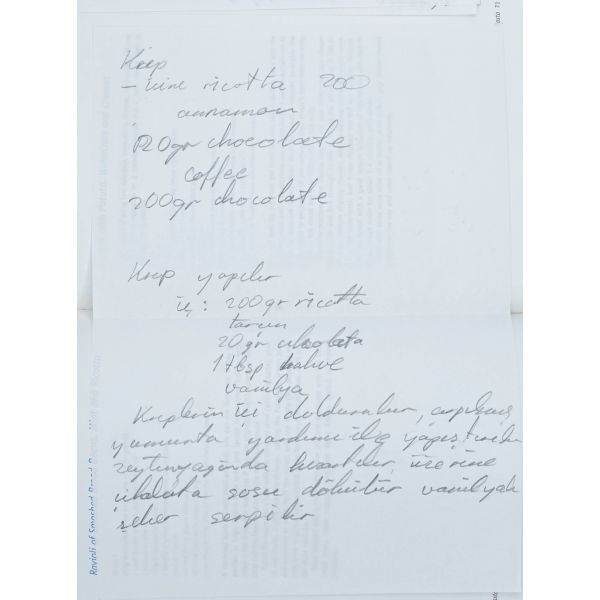 Krep
- içine ricotta 200
cinnamon
120gr chocolate
coffee
200gr chocolate
Krep yapılır
iç: 200gr ricotta
tarçın
20gr çikolata
1 tbsp kahve
vanilya
Kreplerin içi doldurulur, çırpılmış
yumurta yardımı ile yapıştırılır
zeytinyağında kızartılır, üzerine
çikolata sosu dökülür vanilyalı
şeker serpilir
Ravioli of Smashed Broad Beans, Mint and Ricotta